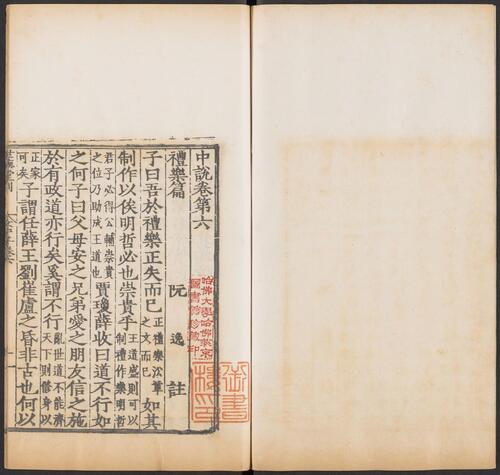 中說卷第六
禮樂篇
阮逸註
子曰吾於禮樂正失而已正禮樂沿革之文而已如其
制作以俟明哲必也崇貴乎王道盛則可以制禮作樂明哲
君子必得公輔崇貴之位乃助成王道也賈瓊薛收曰道不行如
之何子曰父母安之兄弟愛之朋友信之施
於有政道亦行矣奚謂不行亂世道不能濟天下則脩身以
正家可矣子謂任薛王劉崔盧之昏非古也何以
哈佛大學哈佛燕京
圖書館珍藏印